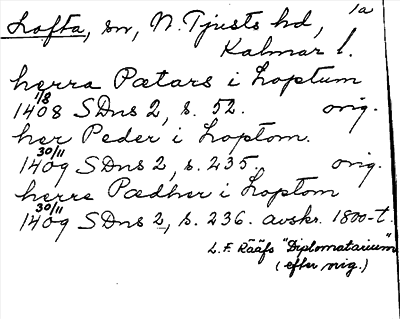 1a
Lofta, sn, N. Tjusts hd,
Kalmar l.
herra Pætars i Loptum
1/8
1408 SDns 2, s. 52. orig.
her Peder i Loptom.
30/11
1409 SDns 2, s. 235. orig.
herre Pædher i Loptom
30/11
1409 SDns 2, s. 236. avskr. 1800-t.
L. F. Rääfs "Diplomatarium"
(efter orig.)